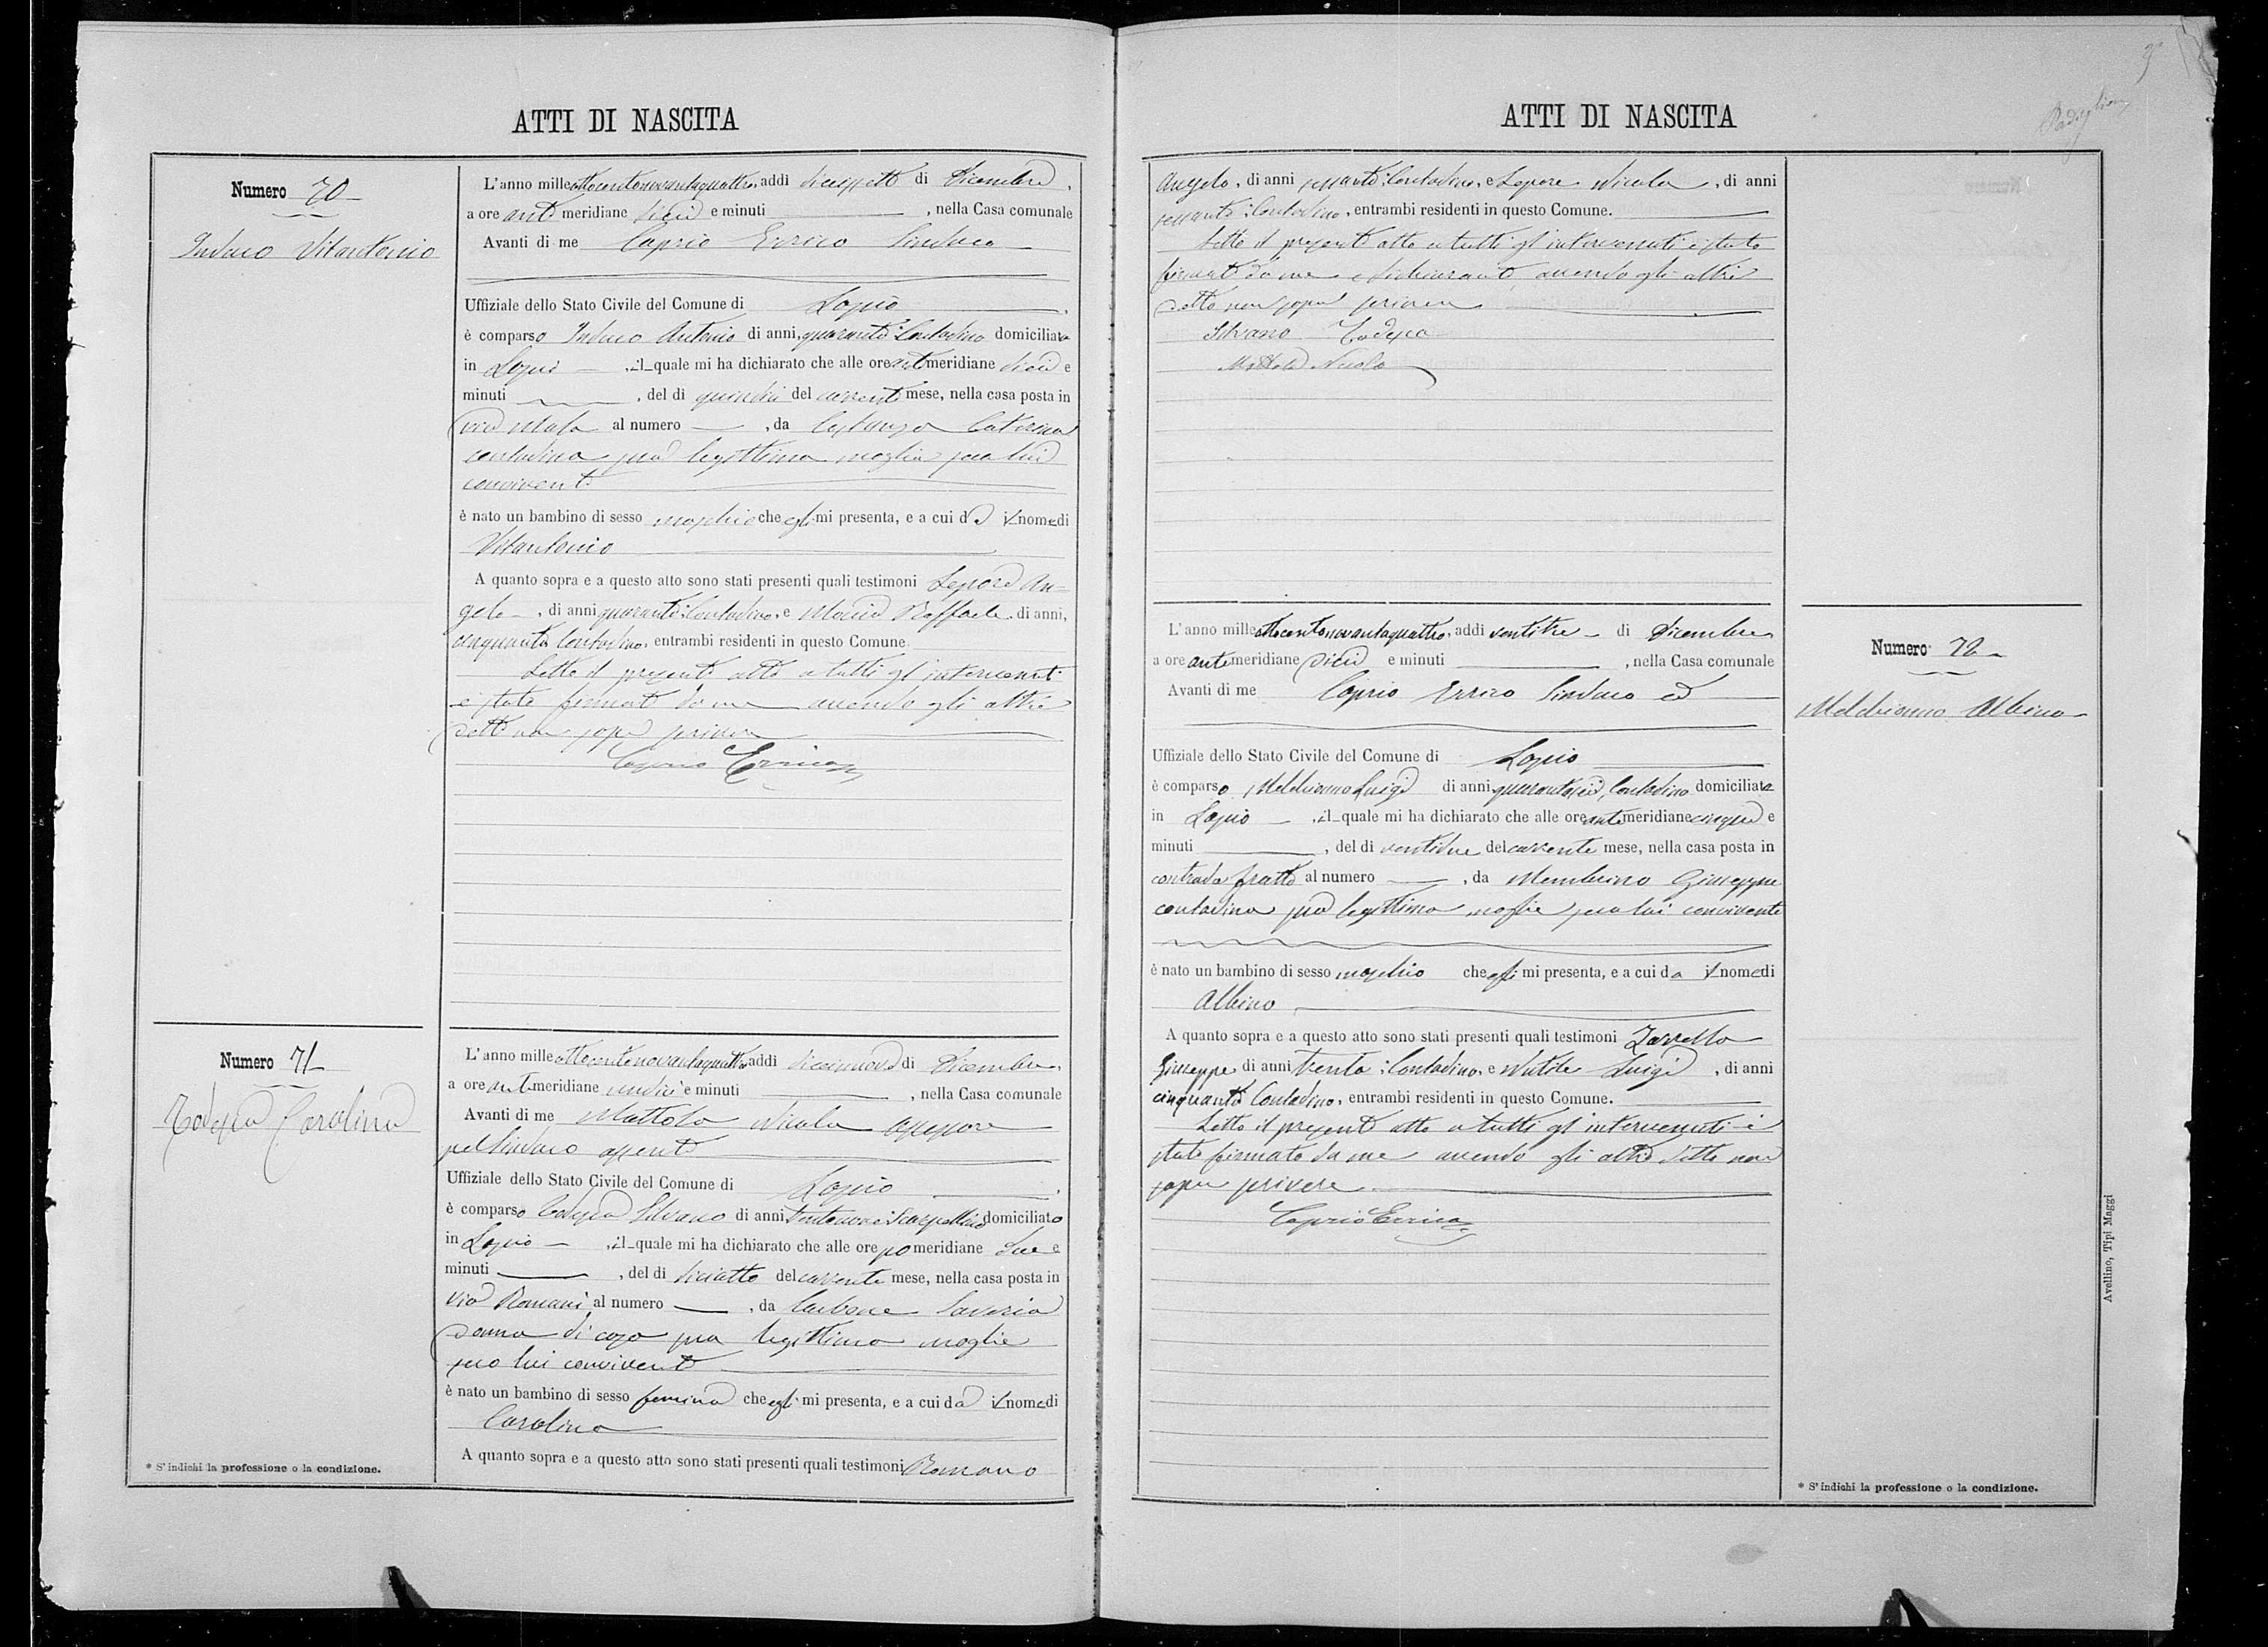 ATTI DI NASCITA
Numero 70
Induco Vitantonio
L'anno milleottocentonovantaquattro, addì diciassette di Dicembre,
a ore anti meridiane dieci e minuti , nella Casa comunale
Avanti di me Caprio Errico Sindaco
Uffiziale dello Stato Civile del Comune di Lapio
è comparso Induco Antonio di anni quaranta Contadino domiciliato
in Lapio , il quale mi ha dichiarato che alle ore anti meridiane dieci e
minuti , del dì quindici del corrente mese, nella casa posta in
via al numero , da Costanza Caterina
contadina sua legittima moglie seco lui
convivente
è nato un bambino di sesso maschio che egli mi presenta, e a cui dà il nome di
Vitantonio
A quanto sopra e a questo atto sono stati presenti quali testimoni Lepore An-
gelo , di anni quaranta Contadino, e Raffaele, di anni,
cinquanta Contadino, entrambi residenti in questo Comune.
Letto il presente atto a tutti gl'intervenuti
è stato firmato da me avendo gli altri
detto non saper scrivere
Caprio Errico
Numero 71
Todesca Carolina
L'anno milleottocentonovantaquattro addì diciannove di Dicembre,
a ore anti meridiane undici e minuti , nella Casa comunale
Avanti di me Mattola Nicola assessore
pel Sindaco assente
Uffiziale dello Stato Civile del Comune di Lapio
è comparso Todesca Silvano di anni trentanove Scarpellino domiciliato
in Lapio , il quale mi ha dichiarato che alle ore po meridiane due e
minuti , del dì diciotto del corrente mese, nella casa posta in
Via Romani al numero , da Carbone Saveria
donna di casa sua legittima moglie
seco lui convivente
è nato un bambino di sesso femina che egli mi presenta, e a cui dà il nome di
Carolina
A quanto sopra e a questo atto sono stati presenti quali testimoni Romano
* S'indichi la professione o la condizione.
ATTI DI NASCITA
Angelo, di anni sessanta Contadino, e Lepore Nicola , di anni
sessanta Contadino, entrambi residenti in questo Comune.
Letto il presente atto a tutti gl'intervenuti è stato
firmato da me e dichiarante avendo gli altri
detto non saper scrivere
Silvano Todesca
Mattola Nicola
L'anno milleottocentonovantaquattro, addì ventitre di Dicembre
a ore anti meridiane dieci e minuti , nella Casa comunale
Avanti di me Caprio Errico Sindaco ed
Uffiziale dello Stato Civile del Comune di Lapio
è comparso Meldrianno Luigi di anni quarantasei, Contadino domiciliato
in Lapio , il quale mi ha dichiarato che alle ore anti meridiane cinque e
minuti , del dì ventidue del corrente mese, nella casa posta in
contrada fratte al numero , da Membrino Giuseppa
contadina sua legittima moglie seco lui convivente
è nato un bambino di sesso maschio che egli mi presenta, e a cui da il nome di
Albino
A quanto sopra e a questo atto sono stati presenti quali testimoni Zarrella
Giuseppe di anni trenta Contadino, e Nutile Luigi , di anni
cinquanta Contadino, entrambi residenti in questo Comune.
Letto il presente atto a tutti gl'intervenuti è
stato firmato da me avendo gli altri detto non
saper scrivere
Caprio Errico
Numero 72
Meldrianno Albino
* S'indichi la professione o la condizione.
Avellino, Tipi Maggi